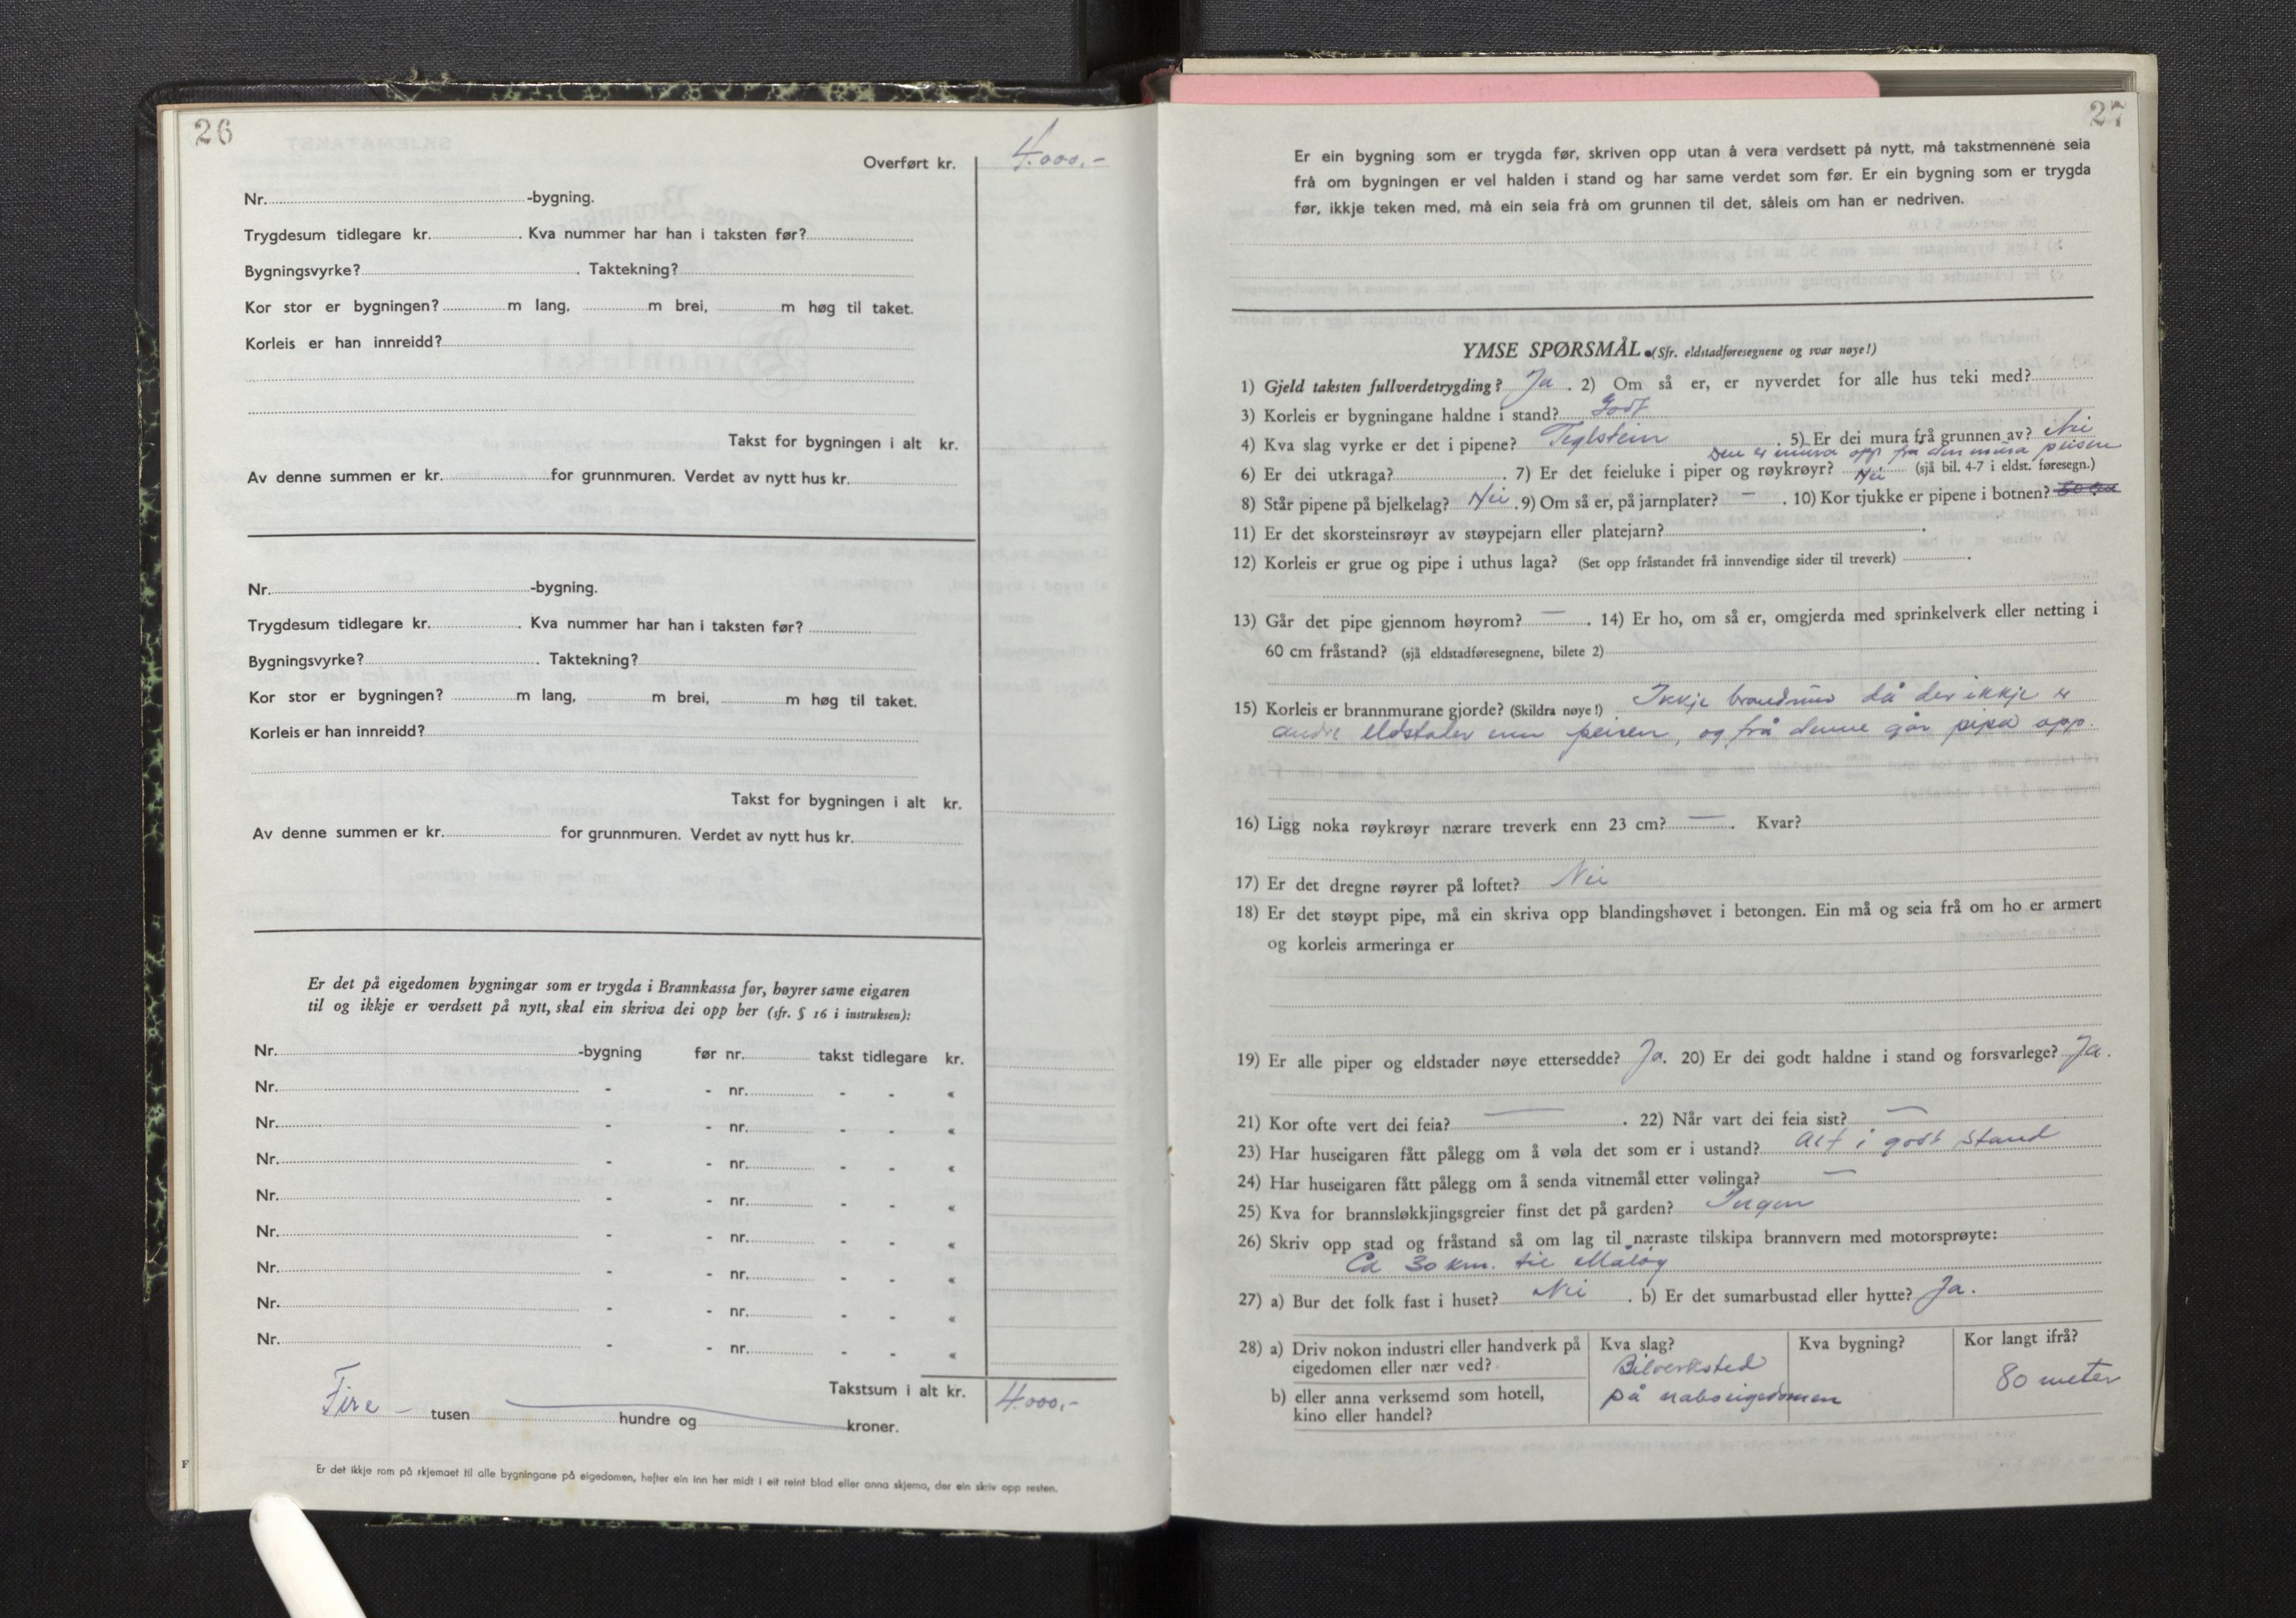 26
Overført kr. 4.000,-
Nr. -bygning.
Trygdesum tidlegare kr. . Kva nummer har han i taksten før?
Bygningsvyrke? . Taktekning?
Kor stor er bygningen? m lang, m brei, m høg til taket.
Korleis er han innreidd?
Takst for bygningen i alt kr.
Av denne summen er kr. for grunnmuren. Verdet av nytt hus kr.
Nr. -bygning.
Trygdesum tidlegare kr. . Kva nummer har han i taksten før?
Bygningsvyrke? . Taktekning?
Kor stor er bygningen? m lang, m brei, m høg til taket.
Korleis er han innreidd?
Takst for bygningen i alt kr.
Av denne summen er kr. for grunnmuren. Verdet av nytt hus kr.
Er det på eigedomen bygningar som er trygda i Brannkassa før, høyrer same eigaren
til og ikkje er verdsett på nytt, skal ein skriva dei opp her (sfr. § 16 i instruksen):
Nr. -bygning før nr. takst tidlegare kr.
Nr. - - nr. - - «
Nr. - - nr. - - «
Nr. - - nr. - - «
Nr. - - nr. - - «
Nr. - - nr. - - «
Nr. - - nr. - - «
Nr. - - nr. - - «
Nr. - - nr. - - «
Takstsum i alt kr. 4.000,-
Fire - tusen hundre og kroner.
F
Er det ikkje rom på skjemaet til alle bygningane på eigedomen, hefter ein inn her midt i eit reint blad eller anna skjema, der ein skriv opp resten.
27
Er ein bygning som er trygda før, skriven opp utan å vera verdsett på nytt, må takstmennene seia
frå om bygningen er vel halden i stand og har same verdet som før. Er ein bygning som er trygda
før, ikkje teken med, må ein seia frå om grunnen til det, såleis om han er nedriven.
YMSE SPØRSMÅL (Sfr. eldstadføresegnene og svar nøye!)
1) Gjeld taksten fullverdetrygding? Ja . 2) Om så er, er nyverdet for alle hus teki med?
3) Korleis er bygningane haldne i stand? Godt
4) Kva slag vyrke er det i pipene? Teglstein . 5) Er dei mura frå grunnen av? Nei
Den er mura opp frå den mura peisen
6) Er dei utkraga? . 7) Er det feieluke i piper og røykrøyr? Nei (sjå bil. 4-7 i eldst. føresegn.)
8) Står pipene på bjelkelag? Nei . 9) Om så er, på jarnplater? - . 10) Kor tjukke er pipene i botnen?
11) Er det skorsteinsrøyr av støypejarn eller platejarn? .
12) Korleis er grue og pipe i uthus laga? (Set opp fråstandet frå innvendige sider til treverk) .
13) Går det pipe gjennom høyrom? — . 14) Er ho, om så er, omgjerda med sprinkelverk eller netting i
60 cm fråstand? (sjå eldstadføresegnene, bilete 2)
15) Korleis er brannmurane gjorde? (Skildra nøye!) Ikkje brandmur då der ikkje er
andre eldstader enn peisen, og frå denne går pipa opp.
16) Ligg noka røykrøyr nærare treverk enn 23 cm? — . Kvar?
17) Er det dregne røyrer på loftet? Nei
18) Er det støypt pipe, må ein skriva opp blandingshøvet i betongen. Ein må og seia frå om ho er armert
og korleis armeringa er
19) Er alle piper og eldstader nøye ettersedde? Ja. 20) Er dei godt haldne i stand og forsvarlege? Ja.
21) Kor ofte vert dei feia? — . 22) Når vart dei feia sist? —
23) Har huseigaren fått pålegg om å vøla det som er i ustand? Alt i godt stand
24) Har huseigaren fått pålegg om å senda vitnemål etter vølinga? —
25) Kva for brannsløkkjingsgreier finst det på garden? Ingen
26) Skriv opp stad og fråstand så om lag til næraste tilskipa brannvern med motorsprøyte:
Ca 30 km. til Måløy
27) a) Bur det folk fast i huset? Nei . b) Er det sumarbustad eller hytte? Ja.
28) a) Driv nokon industri eller handverk på eigedomen eller nær ved?
b) eller anna verksemd som hotell, kino eller handel?
Kva slag? Kva bygning? Kor langt ifrå?
Bilverksted 80 meter
på naboeigedomen